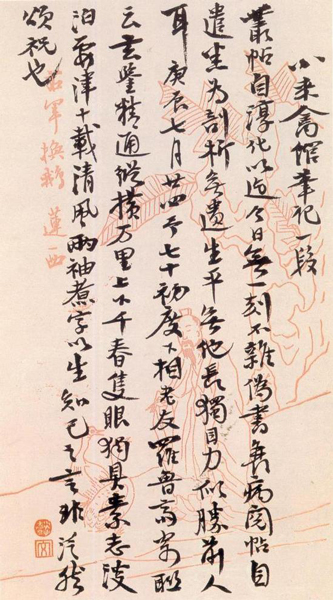 小来禽館筆記一段
叢帖自淳化以迄今日無一刻不雜偽書養病閱帖自
遣坐為剖析無遺生平無他長獨目力似勝前人
耳庚辰七月廿四予七十初度下相老友羅魯齋寄聯
云玄鑒精通縱橫万里上下千春隻眼獨具素志淡
泊要津十載清風兩袖煮字以生知己之言非泛然
頌祝也
右軍換鵝 蓮西